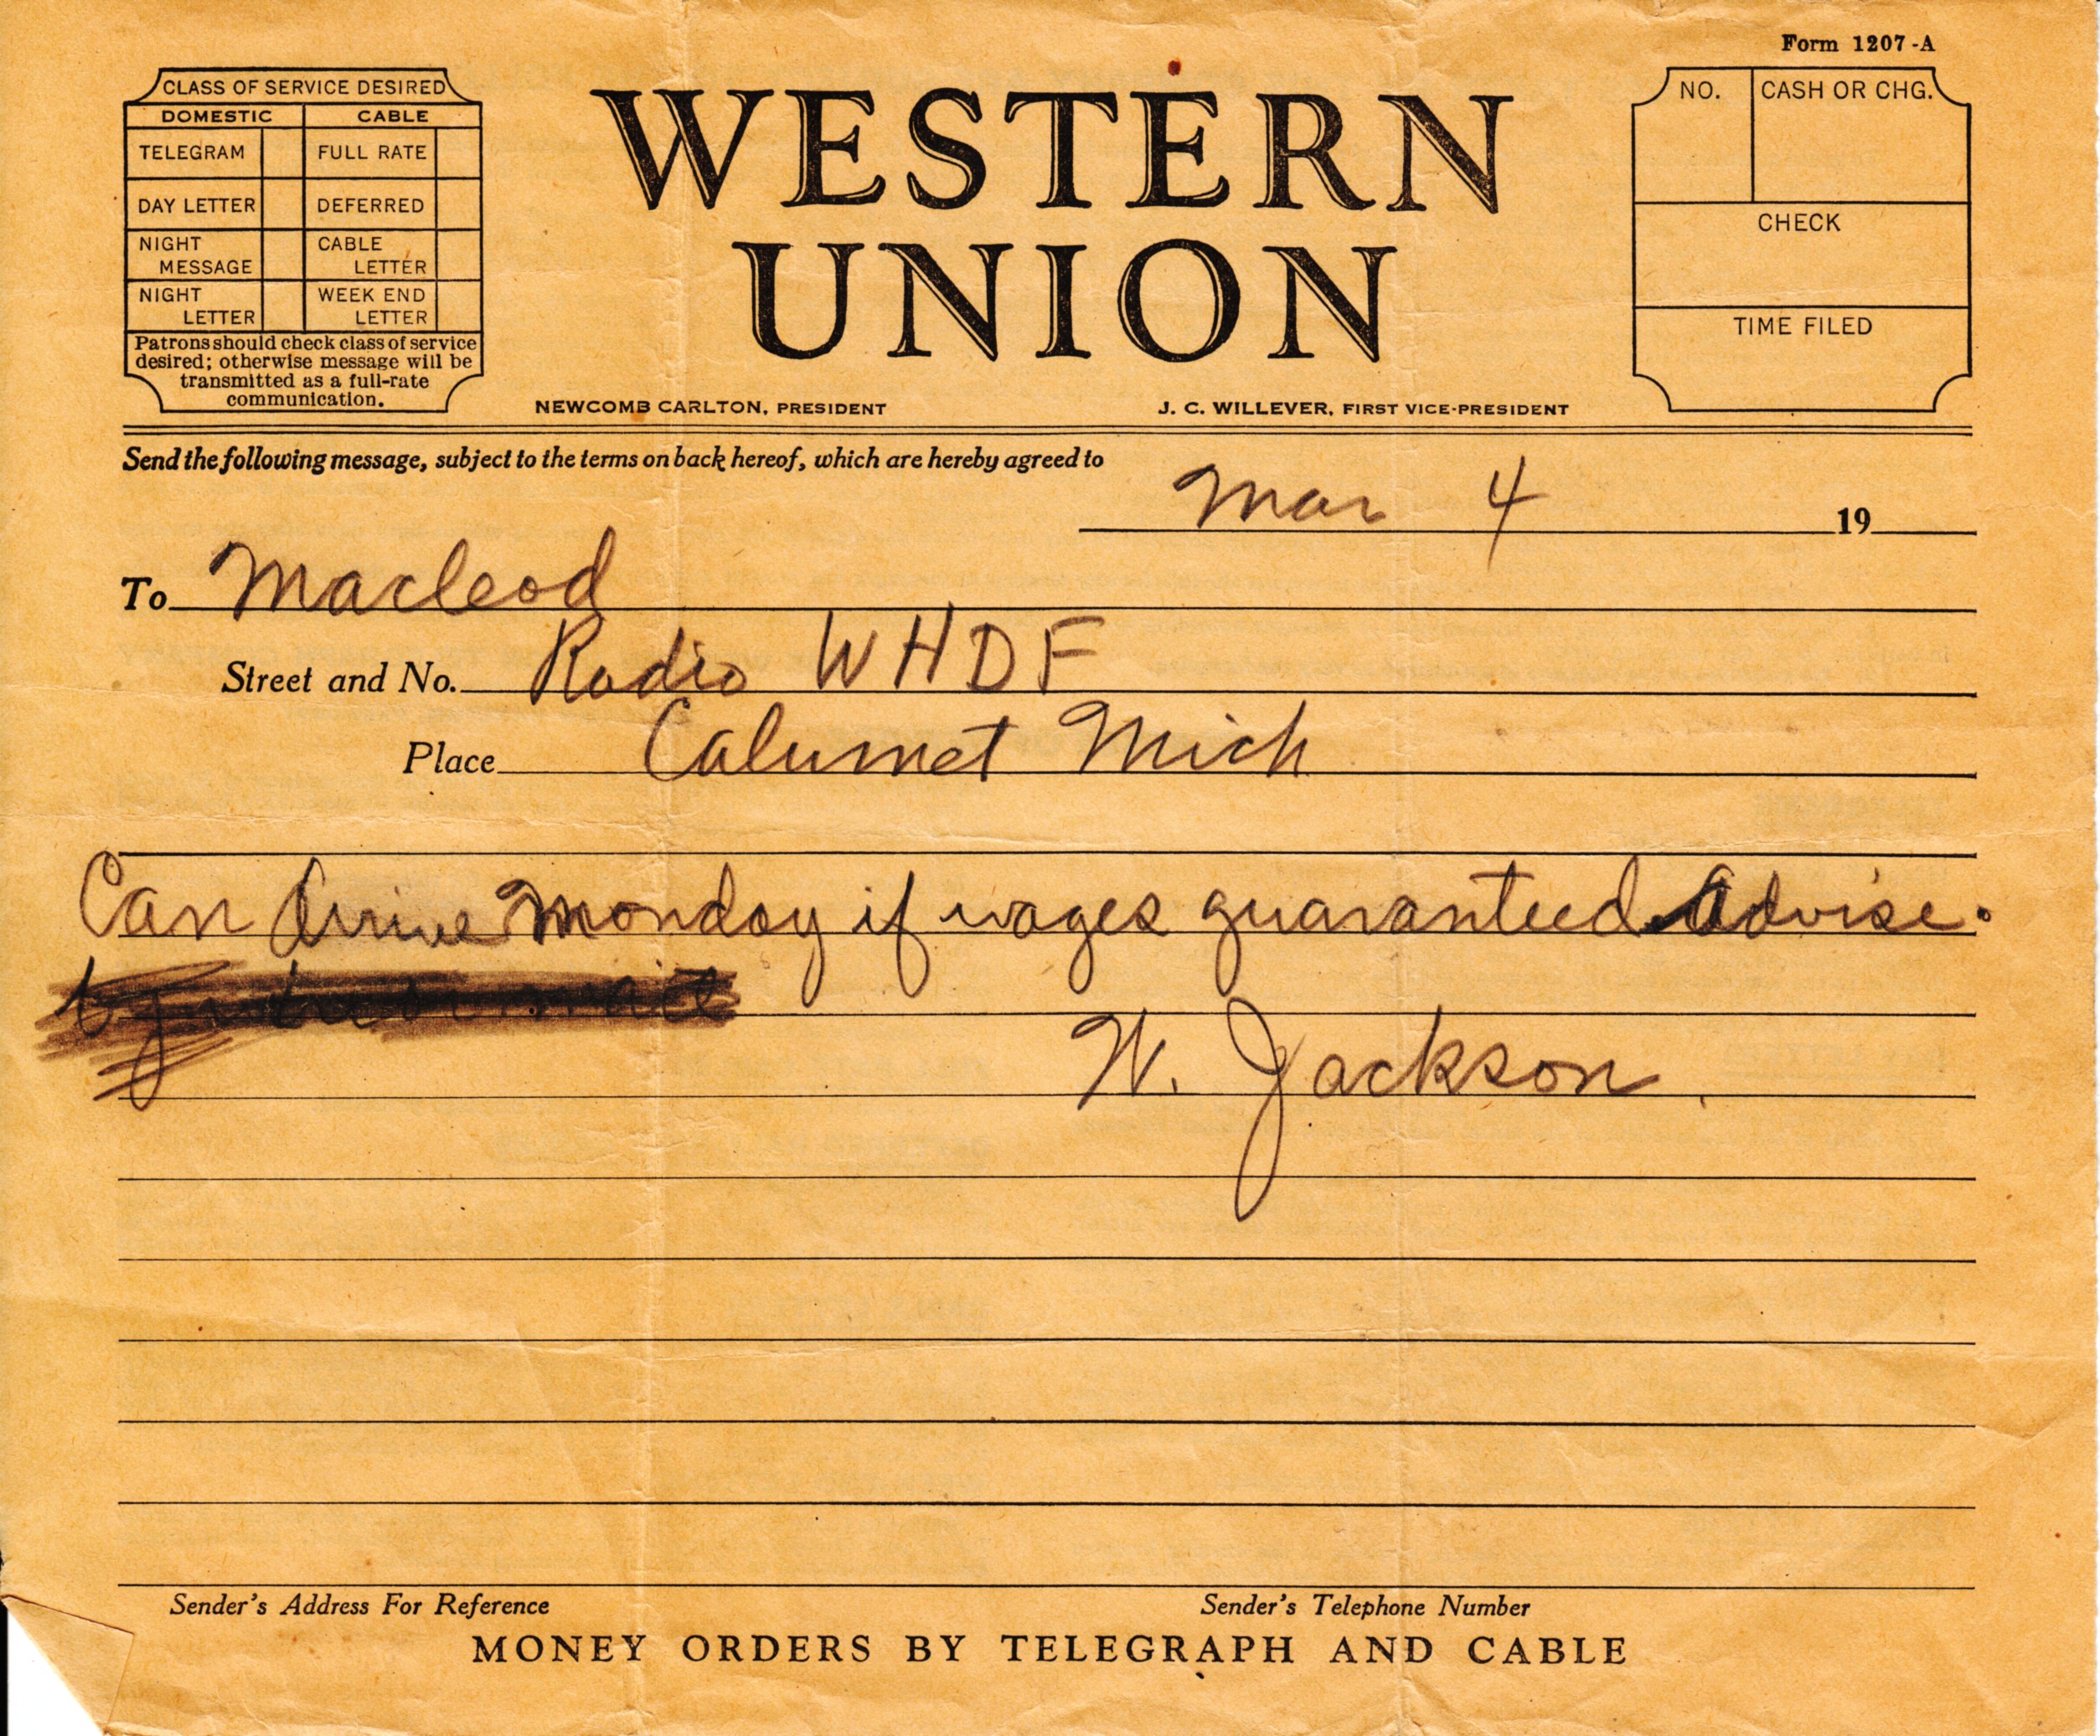 Form 1207-A
CLASS OF SERVICE DESIRED
DOMESTIC CABLE
TELEGRAM FULL RATE
DAY LETTER DEFERRED
NIGHT MESSAGE CABLE LETTER
NIGHT LETTER WEEK END LETTER
Patrons should check class of service
desired; otherwise message will be
transmitted as a full-rate
communication.
WESTERN
UNION
NEWCOMB CARLTON, PRESIDENT J. C. WILLEVER, FIRST VICE-PRESIDENT
NO. CASH OR CHG.
CHECK
TIME FILED
Send the following message, subject to the terms on back hereof, which are hereby agreed to
Mar 4 19
To Macleod
Street and No. Radio WHDF
Place Calumet Mich
Can Arrive Monday if wages guaranteed Advise.
W. Jackson
Sender's Address For Reference Sender's Telephone Number
MONEY ORDERS BY TELEGRAPH AND CABLE